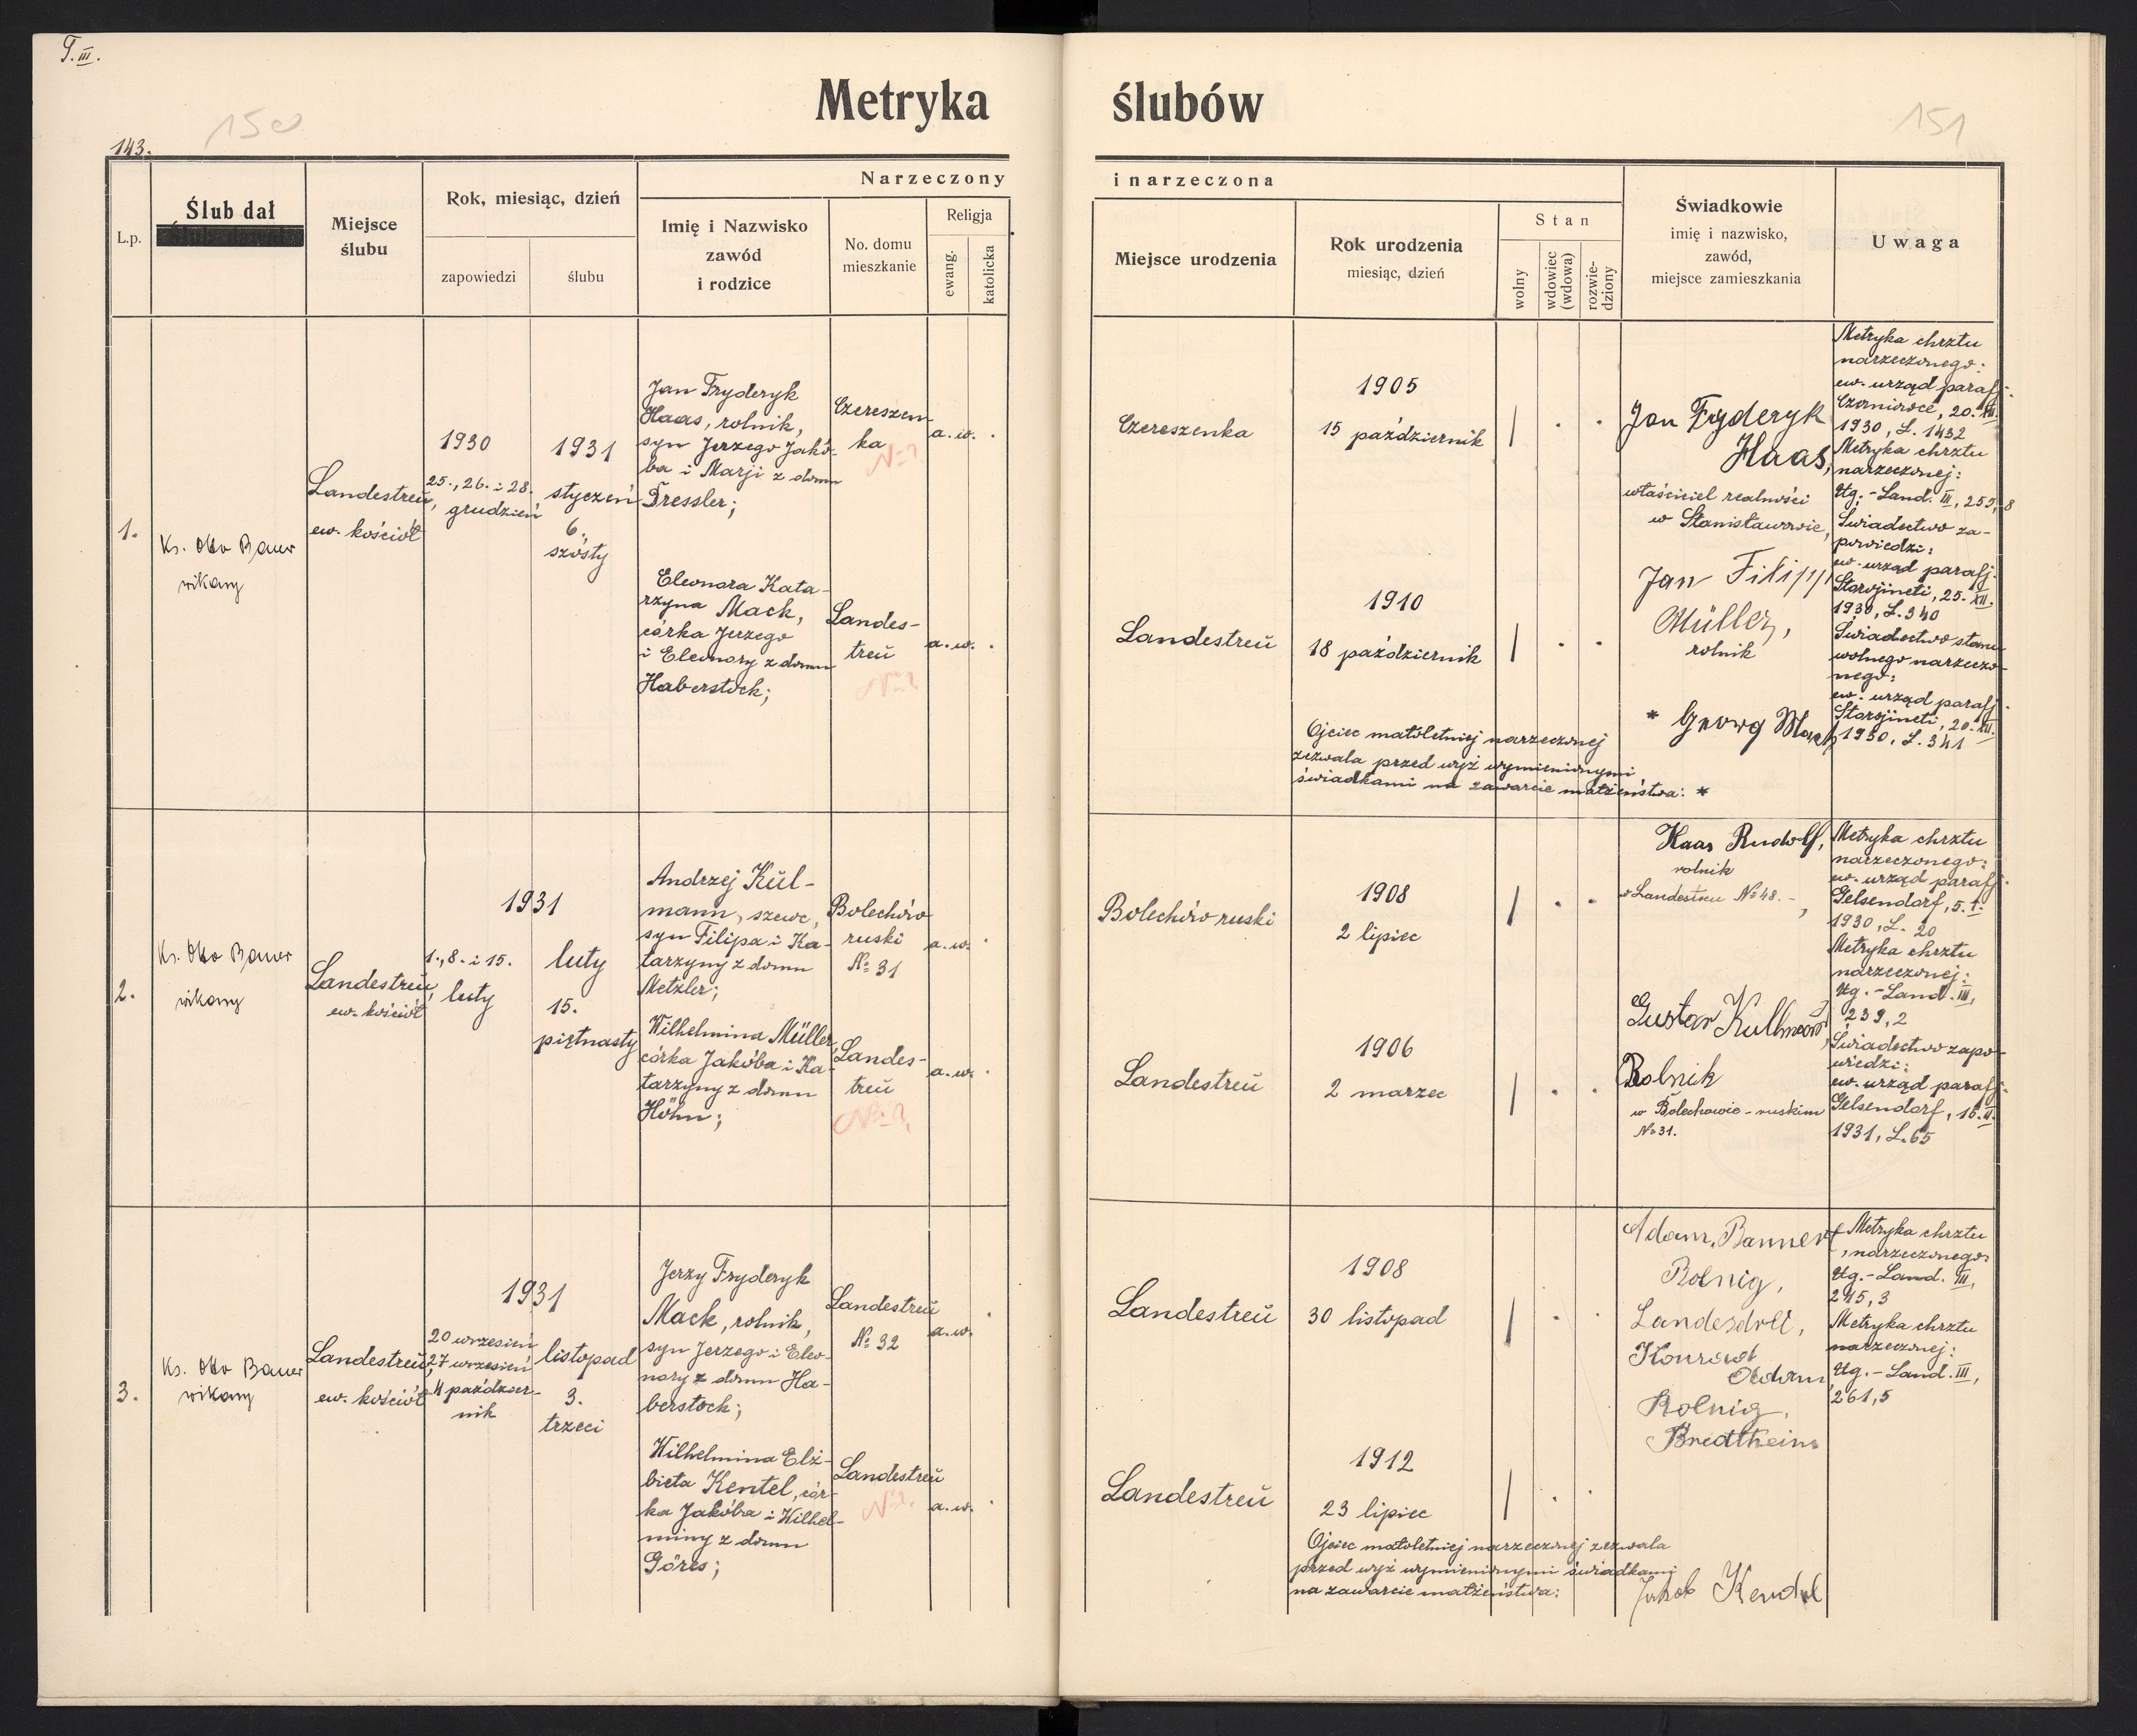 T. III.
Metryka ślubów
150
151
143.
L.p.
Ślub dał
Miejsce
ślubu
Rok, miesiąc, dzień
zapowiedzi
ślubu
Narzeczony
Imię i Nazwisko
zawód
i rodzice
No. domu
mieszkanie
Religja
ewang.
katolicka
i narzeczona
Miejsce urodzenia
Rok urodzenia
miesiąc, dzień
Stan
wolny
wdowiec
(wdowa)
rozwie-
dziony
Świadkowie
imię i nazwisko,
zawód,
miejsce zamieszkania
Uwaga
1.
Ks. Otto Bauer
wikary
Landestreu,
ew. kościół
1930
25., 26. i 28.
grudzień
1931
styczeń
6.
szósty
Jan Fryderyk
Haas, rolnik,
syn Jerzego Jakó-
ba i Marji z domu
Dressler;
Czereszen-
ka
N=?
a. w. .
Eleonora Kata-
rzyna Mack,
córka Jerzego
i Eleonory z domu
Haberstock;
Landes-
treu
N=?
a. w. .
Czereszenka
1905
15 październik
Landestreu
1910
18 październik
Ojciec małoletniej narzeczonej
zezwala przed wyż wymienionymi
świadkami na zawarcie małżeństwa: *
Jan Fryderyk
Haas,
właściciel realności
w Stanisławowie,
Jan Filipp
Müller,
rolnik
* Georg Mack
Metryka chrztu
narzeczonego:
ew. urząd parafj.
Czerniowce, 20. XII.
1930, L. 1432
Metryka chrztu
narzeczonej:
Ug.-Land. III, 255, 8
Świadectwo za-
powiedzi:
ew. urząd parafj.
Storojineti, 25. XII.
1930, L. 340
Świadectwo stanu
wolnego narzeczo-
nego:
ew. urząd parafj.
Storojineti, 20. XII.
1930, L. 341
2.
Ks. Otto Bauer
wikary
Landestreu,
ew. kościół
1931
1., 8. i 15.
luty
luty
15.
piętnasty
Andrzej Kul-
mann, szewc,
syn Filipa i Ka-
tarzyny z domu
Metzler;
Bolechów
ruski
No 31
a. w. .
Wilhelmina Müller,
córka Jakóba i Ka-
tarzyny z domu
Höhn;
Landes-
treu
No ?
a. w. .
Bolechów ruski
1908
2 lipiec
Landestreu
1906
2 marzec
Haas Rudolf,
rolnik
w Landestreu No 48. - ,
Gustav Kullmann,
Rolnik
w Bolechowie-ruskim
No 31.
Metryka chrztu
narzeczonego:
ew. urząd parafj.
Gelsendorf, 5. I.
1930, L. 20
Metryka chrztu
narzeczonej:
Ug.-Land. III,
239, 2
Świadectwo zapo-
wiedzi:
ew. urząd parafj.
Gelsendorf, 16. II.
1931, L. 65
3.
Ks. Otto Bauer
wikary
Landestreu,
ew. kościół
1931
20 wrzesień
27 wrzesień
4 paździer-
nik
listopad
3.
trzeci
Jerzy Fryderyk
Mack, rolnik,
syn Jerzego i Eleo-
nory z domu Ha-
berstock;
Landestreu
No 32
a. w. .
Wilhelmina Elż-
bieta Kentel, cór-
ka Jakóba i Wilhel-
miny z domu
Göres;
Landestreu
No ?
a. w. .
Landestreu
1908
30 listopad
Landestreu
1912
23 lipiec
Ojciec małoletniej narzeczonej zezwala
przed wyż wymienionymi świadkami
na zawarcie małżeństwa:
Adam, Bannert
Rolnig,
Konradt
Adam
Rolnig,
Bredtheim
Jakob Kendel
Metryka chrztu
narzeczonego:
Ug.-Land. III,
245, 3
Metryka chrztu
narzeczonej:
Ug.-Land. III,
261, 5